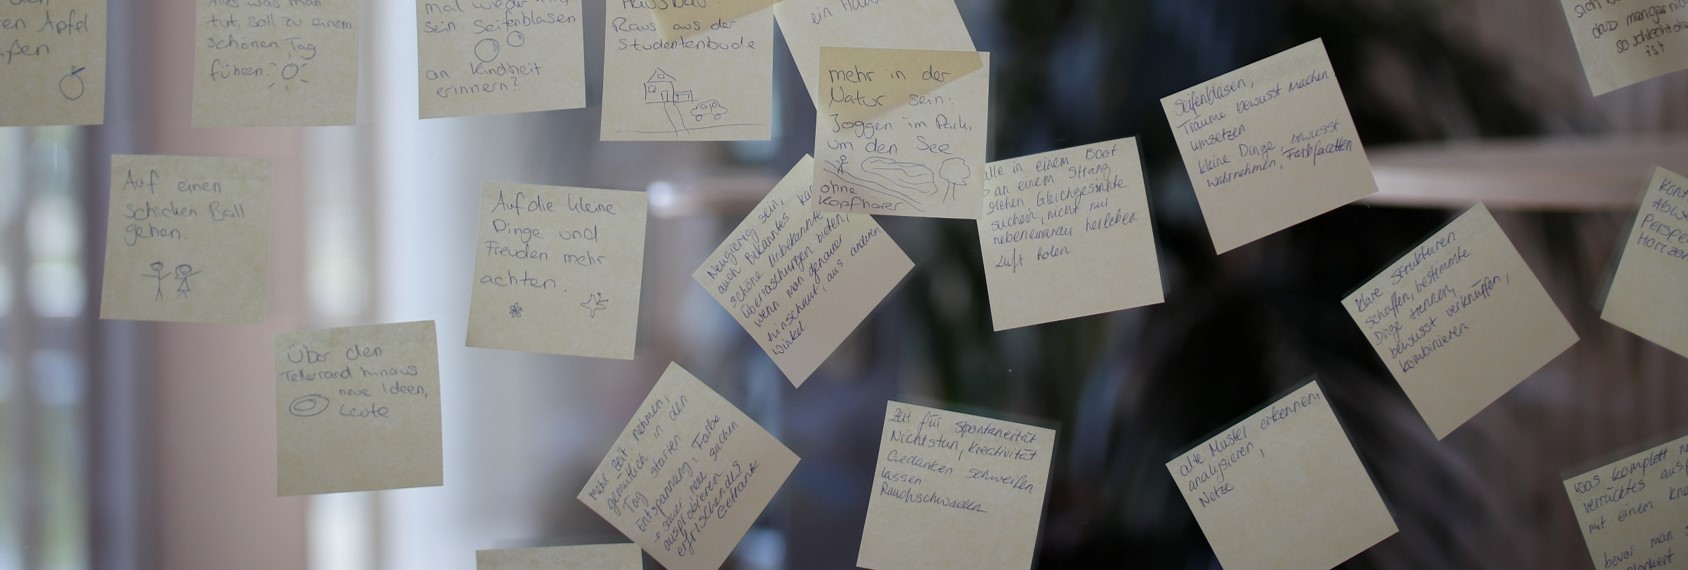 Apfel
tut, soll zu einem
schönen Tag
führen.
mal wieder
sein Seifenblasen
an Kindheit
erinnern?
Hausbau:
Raus aus der
Studentenbude
ein
mehr in der
Natur sein:
Joggen im Park,
um den See
ohne
Kopfhörer
Seifenblasen,
Träume bewusst machen,
umsetzen
kleine Dinge, bewusst
wahrnehmen, Farbfacetten
sich
dass
so schlecht
ist
Auf einen
schicken Ball
gehen.
Auf die kleine
Dinge und
Freuden mehr
achten.
Neugierig sein,
auch Bekanntes kann
schöne unbekannte
Überraschungen bieten,
wenn man genauer
hinschaut, aus anderen
Winkel
alle in einem Boot
an einem Strang
ziehen Gleichgesinnte
suchen, nicht nur
nebeneinander herleben
Luft holen
klare Strukturen
schaffen, bestimmte
Dinge trennen,
bewusst verknüpfen,
kombinieren
Über den
Tellerrand hinaus
neue Ideen,
Leute
mehr Zeit nehmen,
gemütlich in den
Tag starten
Entspannung, Farbe
neue Sachen
ausprobieren
erfrischendes
Getränk
Zeit für Spontanität
Nichtstun, Kreativität
Gedanken schweifen
lassen
Rauchschwaden
alte Muster erkennen,
analysieren,
Netze
was komplett
verrücktes
mit einem
bevor man